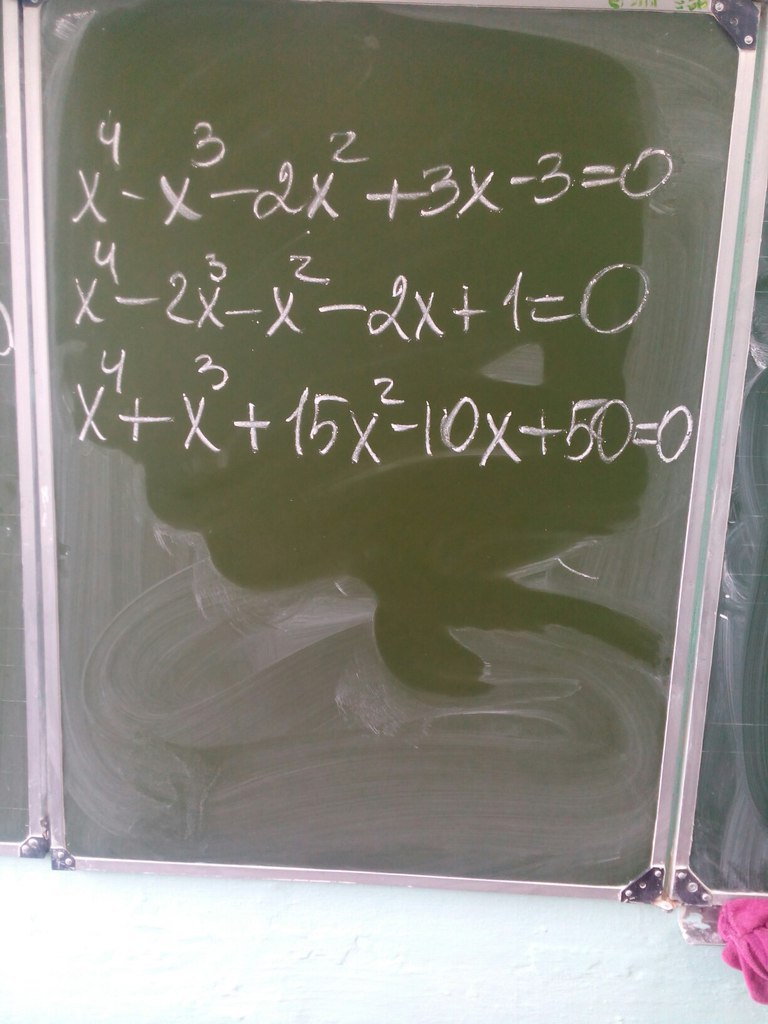 x⁴-x³-2x²+3x-3=0
x⁴-2x³-x²-2x+1=0
x⁴+x³+15x²-10x+50=0